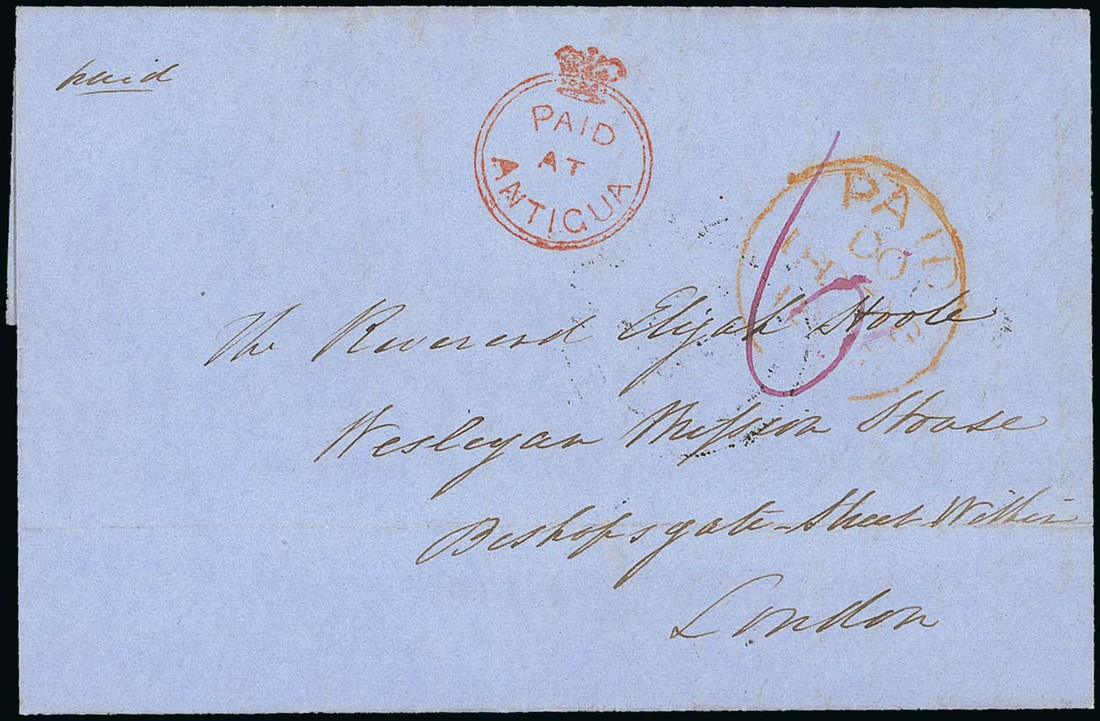 paid
PAID
AT
ANTIGUA
PAID
6
The Reverend Elijah Hoole
Wesleyan Mission House
Bishopsgate-Street Within
London